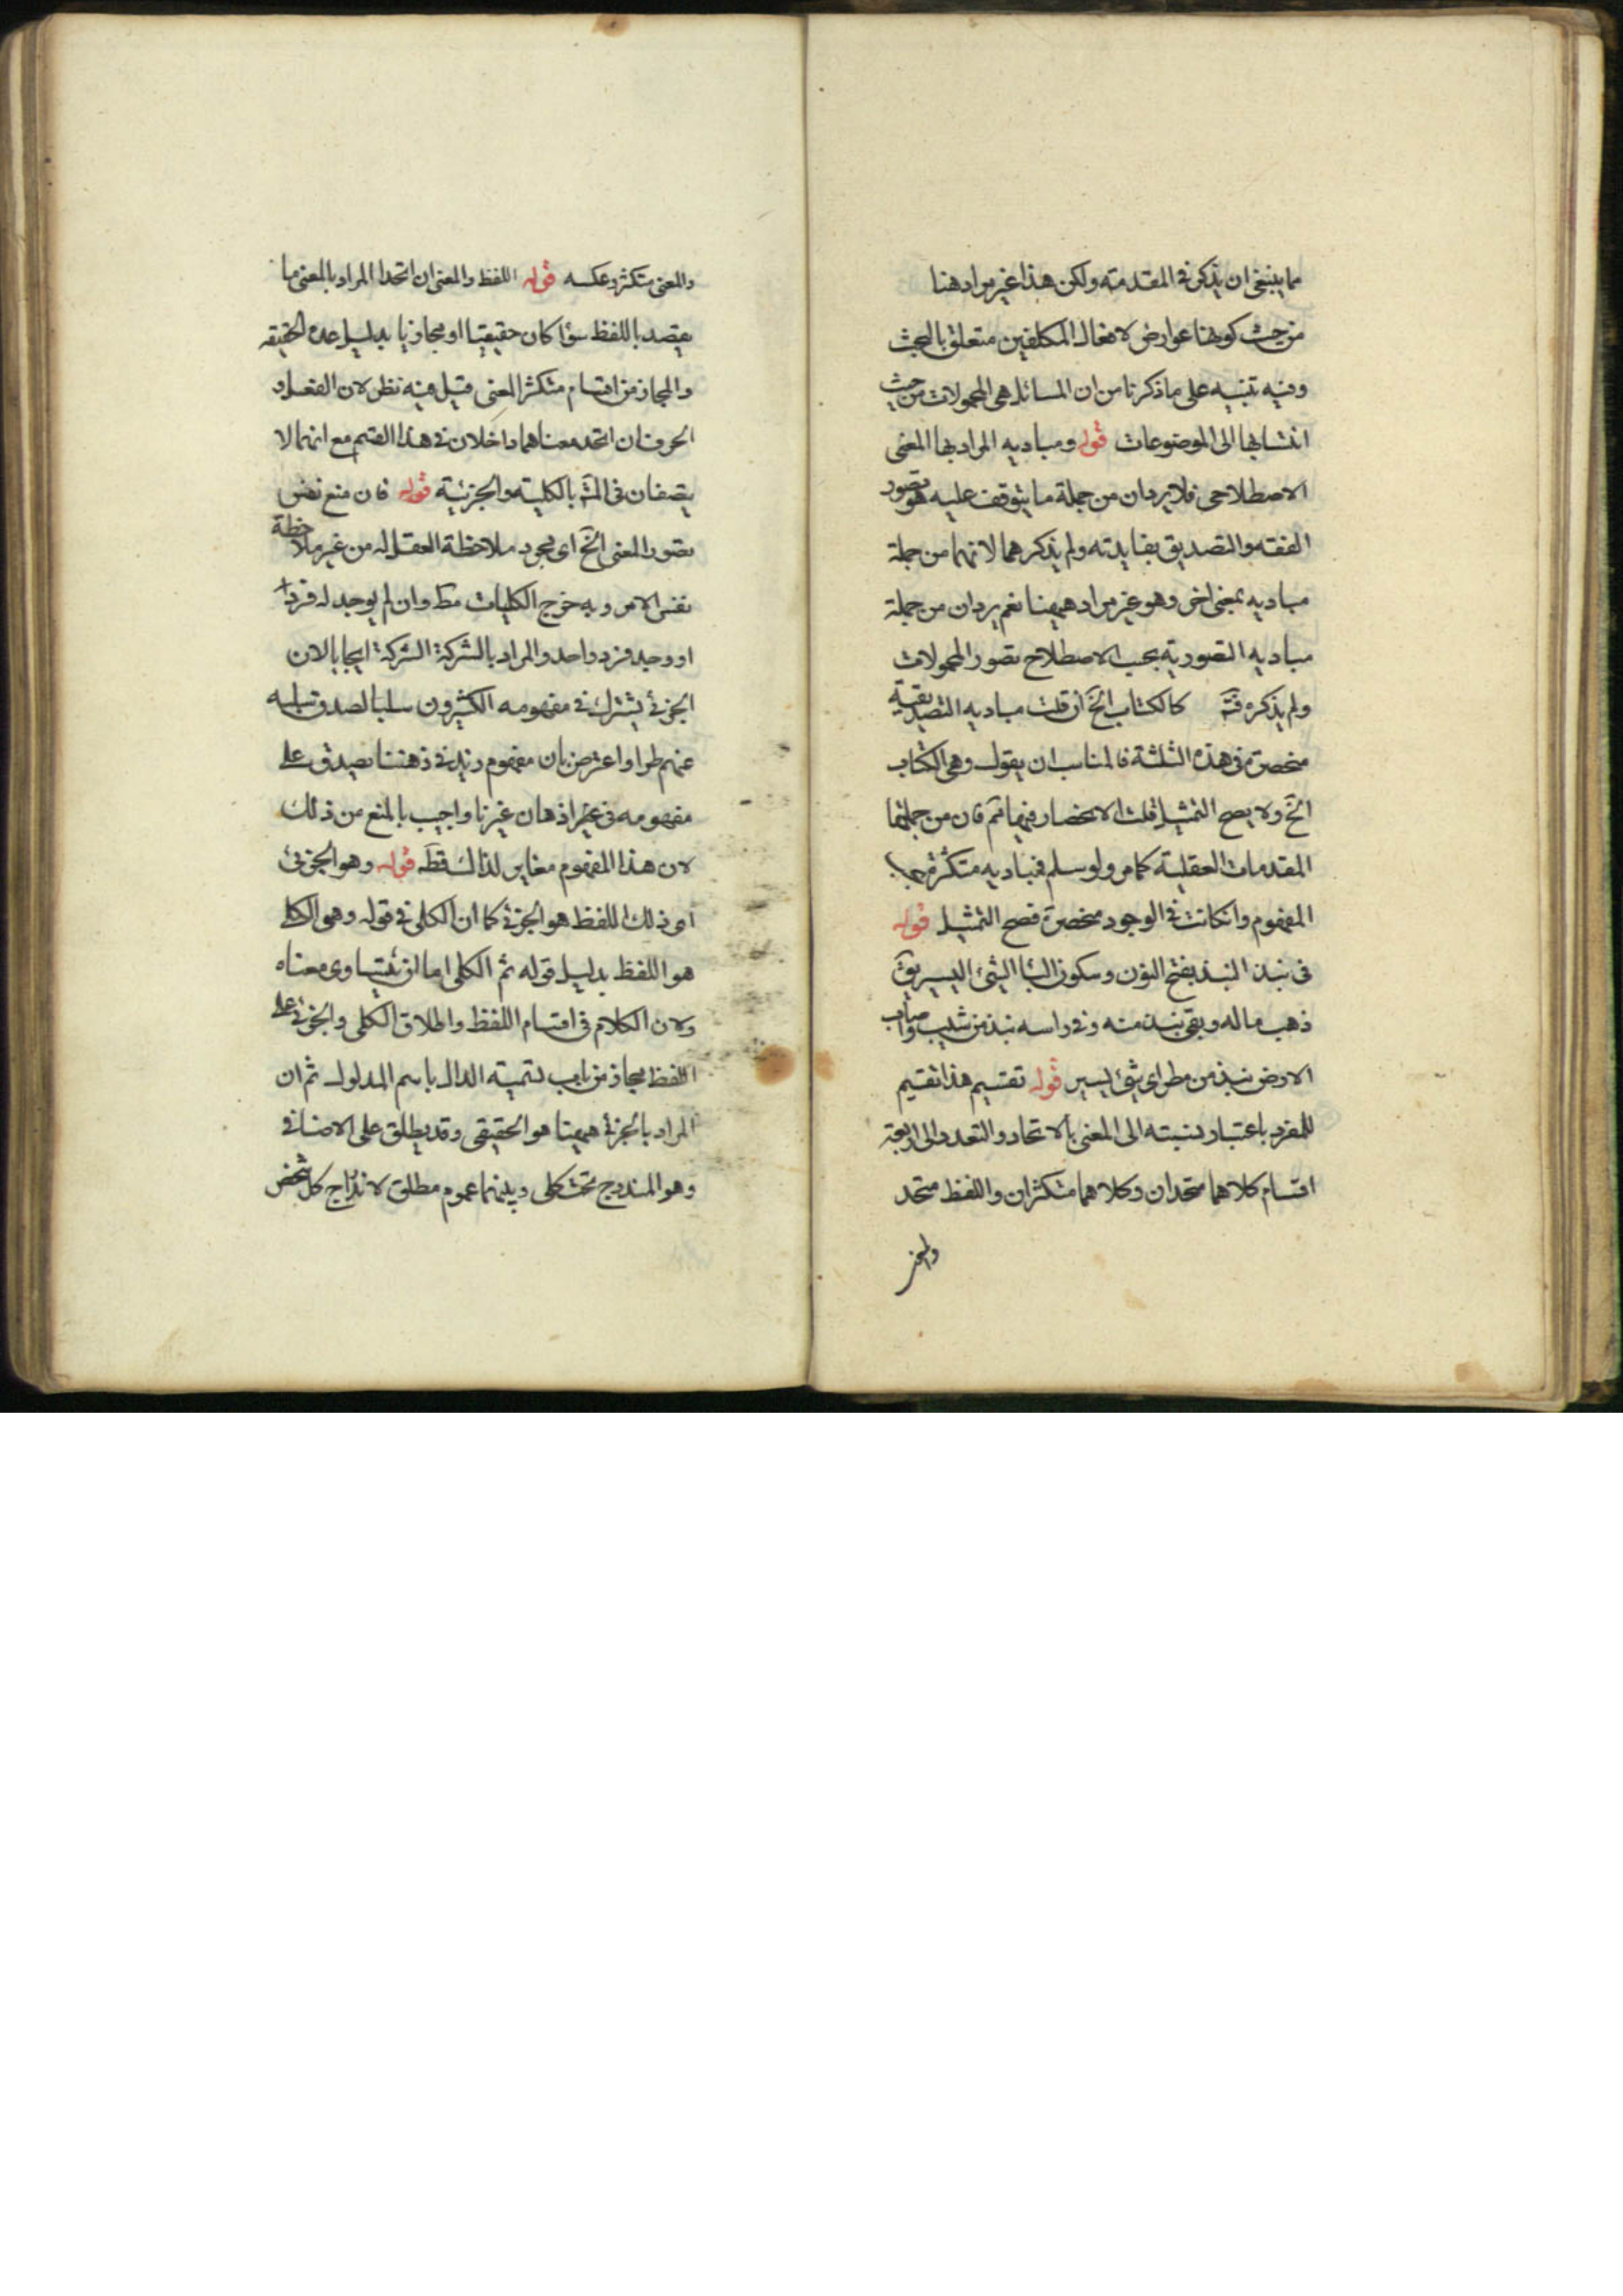 مما ينبغى ان يذكر فى المقدمته ولكن هذا غير مراد هنا
من حيث كونها عوارض لافعال المكلفين متعلق بالبحث
وفيه تنبيه على ما ذكرنا من ان المسائل هى المحمولات من حيث
انتسابها الى الموضوعات قوله ومباديه المراد بها المعنى
الاصطلاحى فلا يرد ان من جملة ما يتوقف عليه هو تصور
الفقه والتصديق بفايدته ولم يذكرهما لانهما من جملة
مباديه بمعنى اخر وهو غير مراد هيهنا نعم يرد ان من جملة
مباديه التصورية بحسب الاصطلاح تصور المحمولات
ولم يذكره كالكتاب الخ ان قلت مباديه التصديقية
منحصرة فى هذه الثلثة فالمناسب ان يقول وهى الكتاب
الخ ولا يصح التمثيل قلت الانحصار فيها مم فان من جملتها
المقدمات العقلية كما مر ولو سلم فمباديه متكثرة
المفهوم وان كانت فى الوجود منحصرة فصح التمثيل قوله
فى نبذ النبذ بفتح النون وسكون البا الشئ اليسير يق
ذهب ماله وبقى نبذ منه وفى راسه نبذ من شيب واصاب
الارض نبذ من مطر اى شئ يسير قوله تقسيم هذا تقسيم
للمفرد باعتبار نسبته الى المعنى بالاتحاد والتعدد الى اربعة
اقسام كلاهما متحدان وكلاهما متكثران واللفظ متحد
والمعنى
والمعنى متكثر وعكسه قوله اللفظ والمعنى ان اتحدا المراد بالمعنى ما
يقصد باللفظ سؤا كان حقيقيا او مجازيا بدليل عده الحقيقه
والمجاز من اقسام متكثر المعنى قيل فيه نظر لان الفعل و
الحرف ان اتحد معناهما داخلان فى هذا القسم مع انهما لا
يتصفان فى المش بالكلية والجزئية قوله فان منع نفس
تصور المعنى الخ اى بمجرد ملاحظة العقل له من غير ملاحظة
نفس الامر وبه خرج الكليات مط وان لم يوجد له فرد
او وجد فرد واحد والمراد بالشركة الشركة ايجابا لان
الجزئى يشترك فى مفهومه الكثيرون سلبا لصدق سلبه
عنهم طرا واعترض بان مفهوم زيد فى ذهننا يصدق على
مفهومه فى اذهان غيرنا واجيب بالمنع من ذلك
لان هذا المفهوم مغاير لذالك قطه قوله وهو الجزئى
اى ذلك اللفظ هو الجزئى كما ان الكلى فى قوله وهو الكلى
هو اللفظ بدليل قوله ثم الكلى اما ان يتساوى معناه
ولان الكلام فى اقسام اللفظ واطلاق الكلى والجزئى على
اللفظ مجاز من باب تسمية الدال باسم المدلول ثم ان
المراد بالجزئى هيهنا هو الحقيقى وقد يطلق على الاضافى
وهو المندرج تحت كلى وبينهما عموم مطلق لاندراج كل شخص